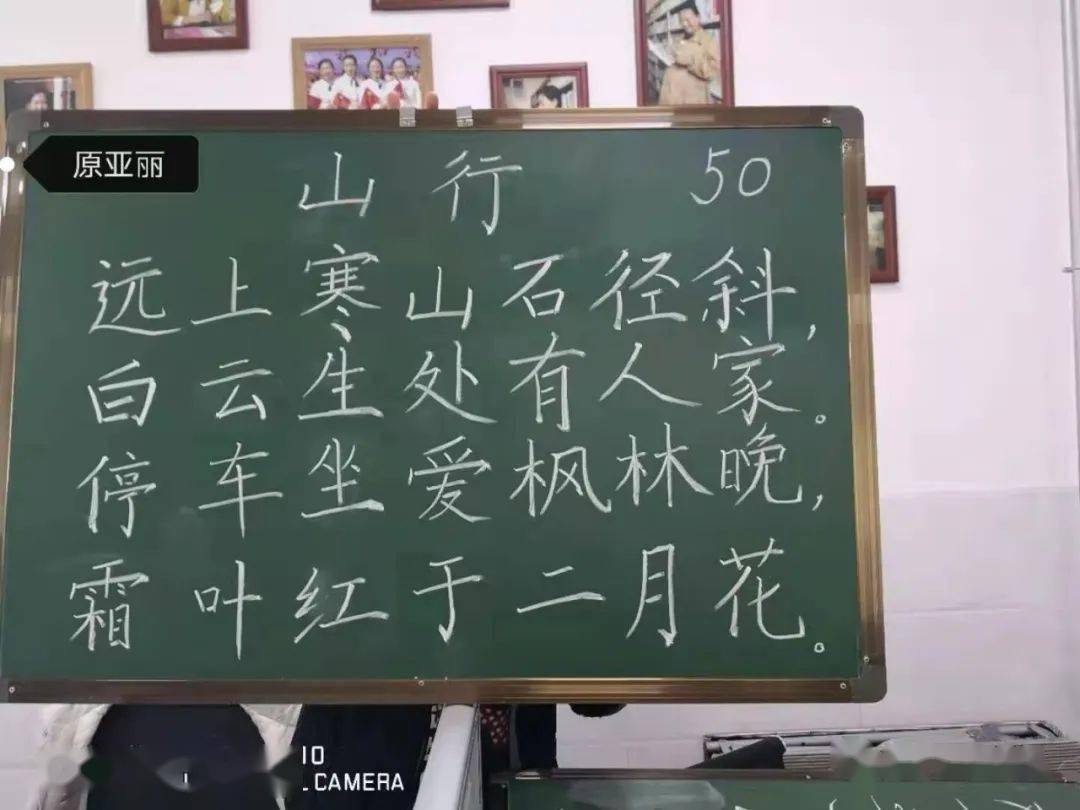 原亚丽
山行 50
远上寒山石径斜，
白云生处有人家。
停车坐爱枫林晚，
霜叶红于二月花。
CAMERA